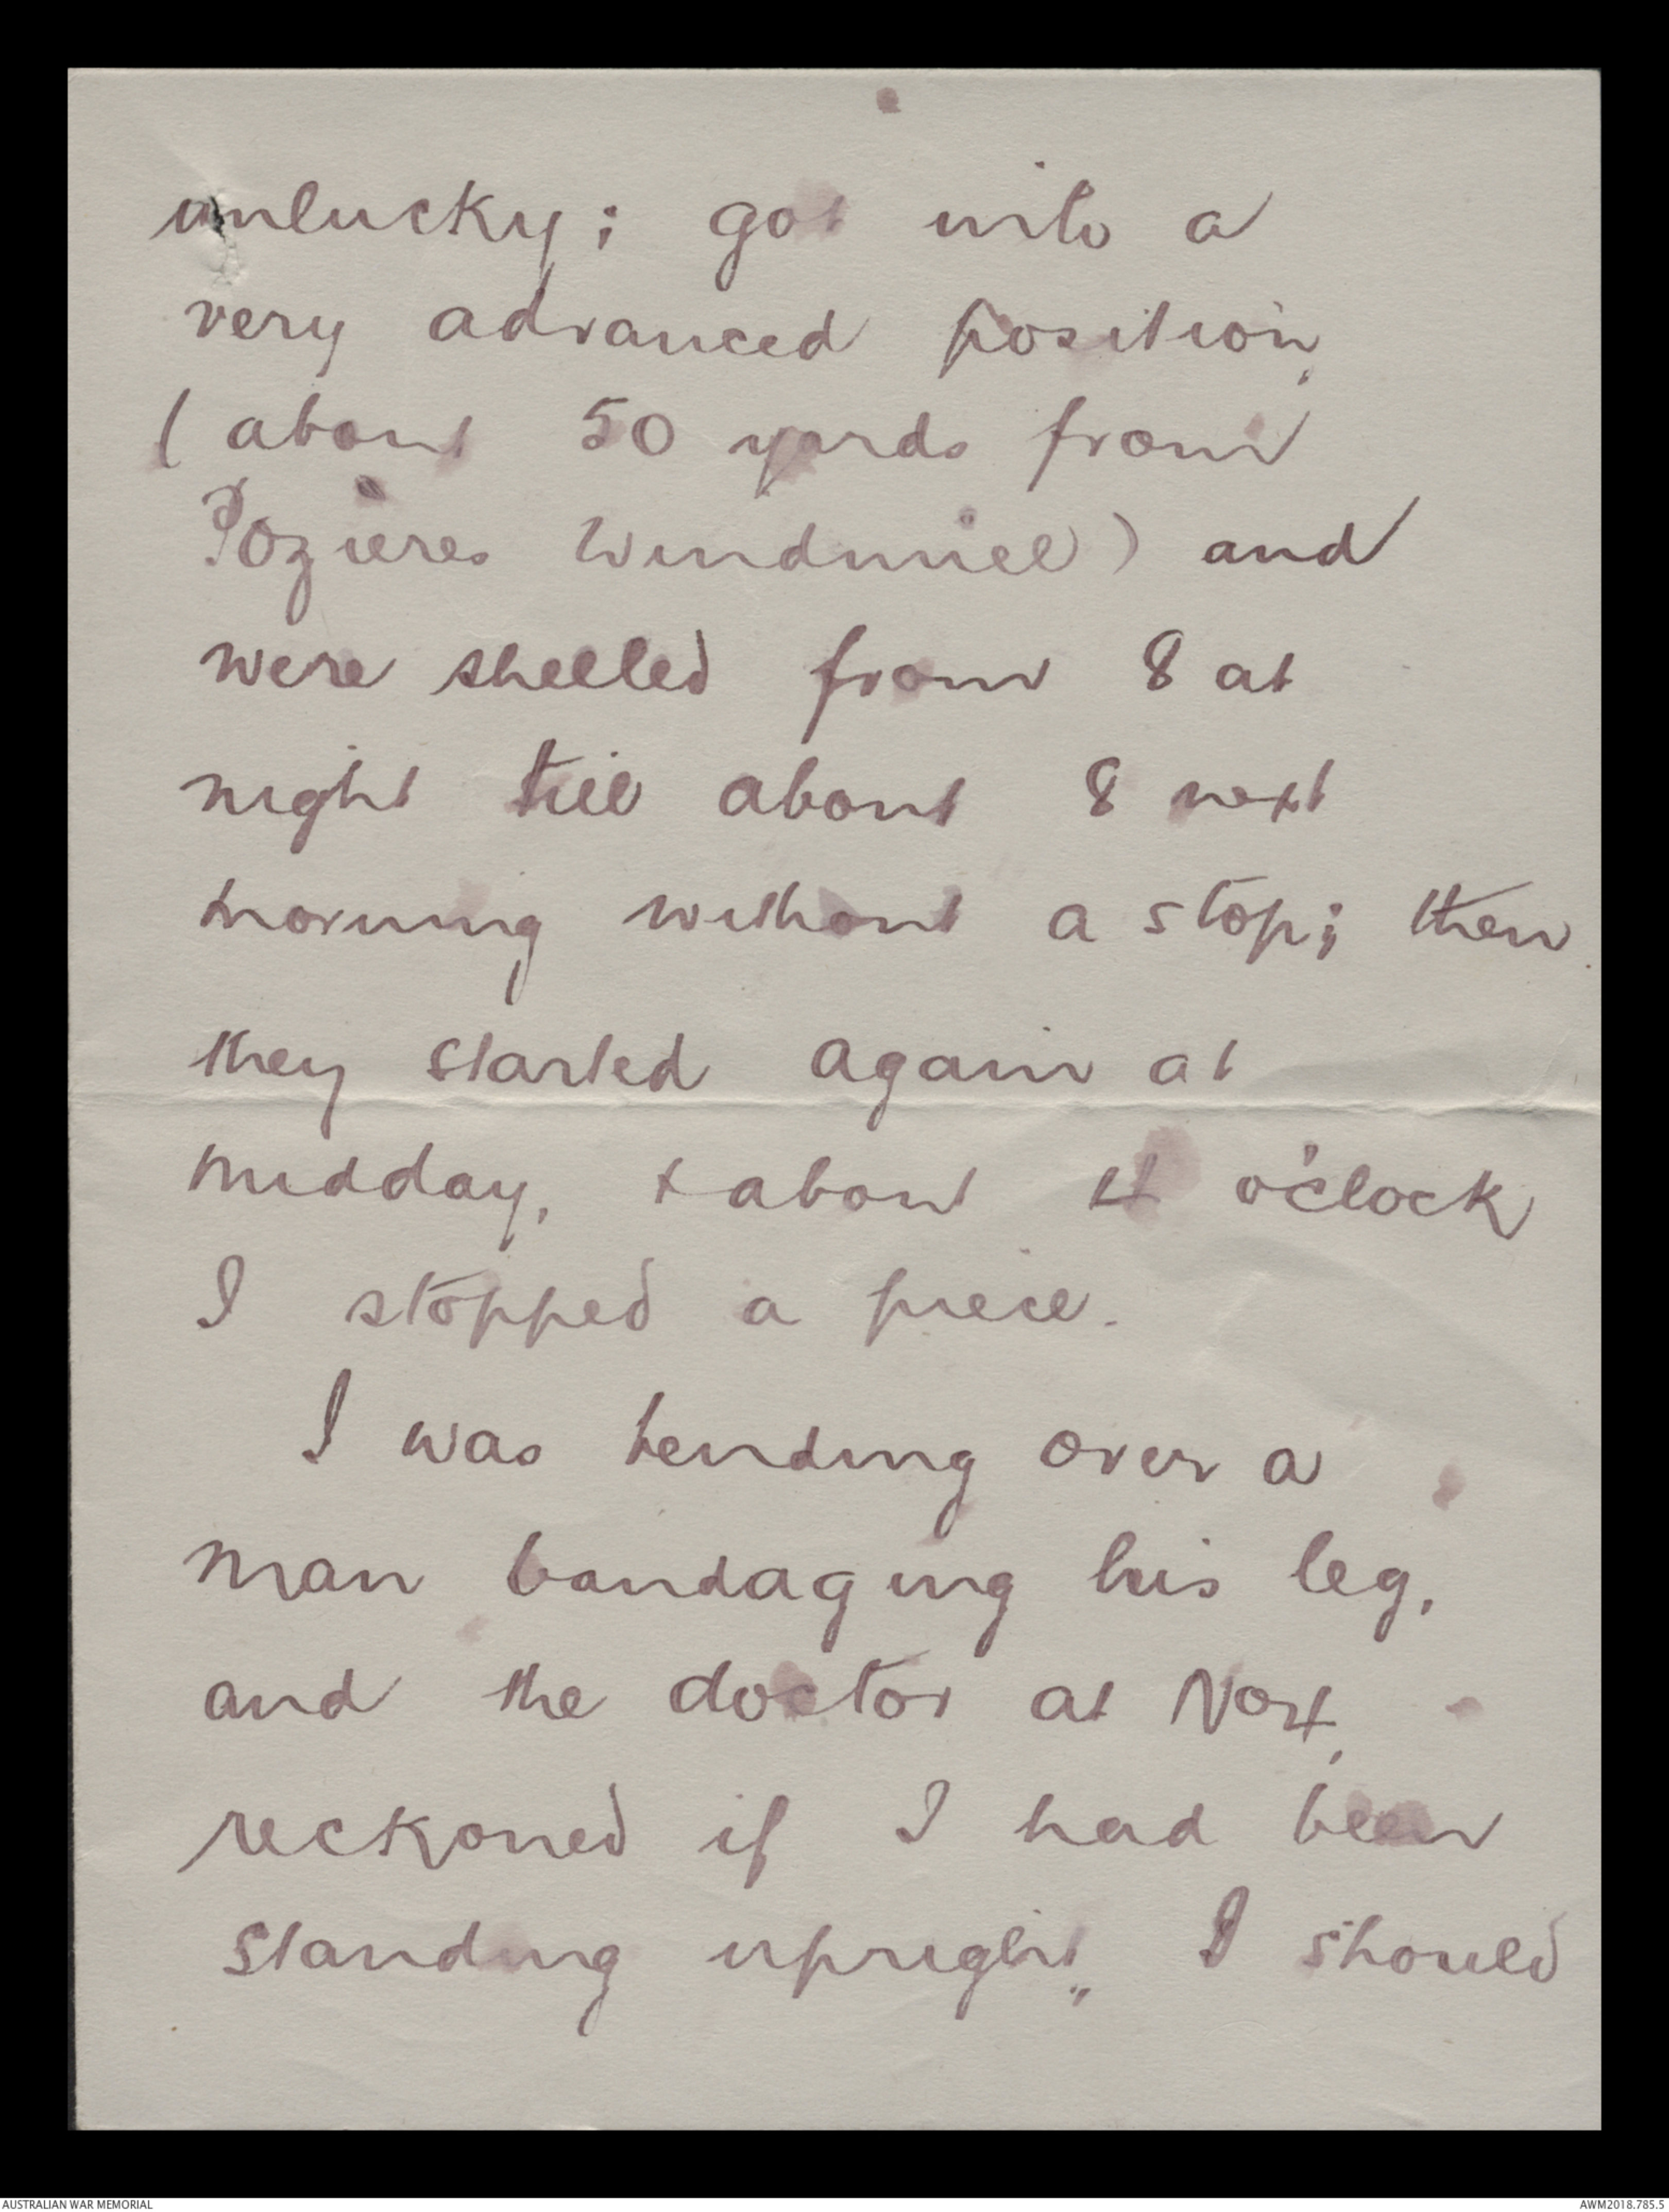 unlucky; got into a
very advanced position,
(about 50 yards from
Pozieres Windmill) and
were shelled from 8 at
night till about 8 next
morning without a stop; then
they started again at
midday, & about 4 o'clock
I stopped a piece.
I was bending over a
man bandaging his leg,
and the doctor at
reckoned if I had been
standing upright, I should
AUSTRALIAN WAR MEMORIAL
AWM2018.785.5